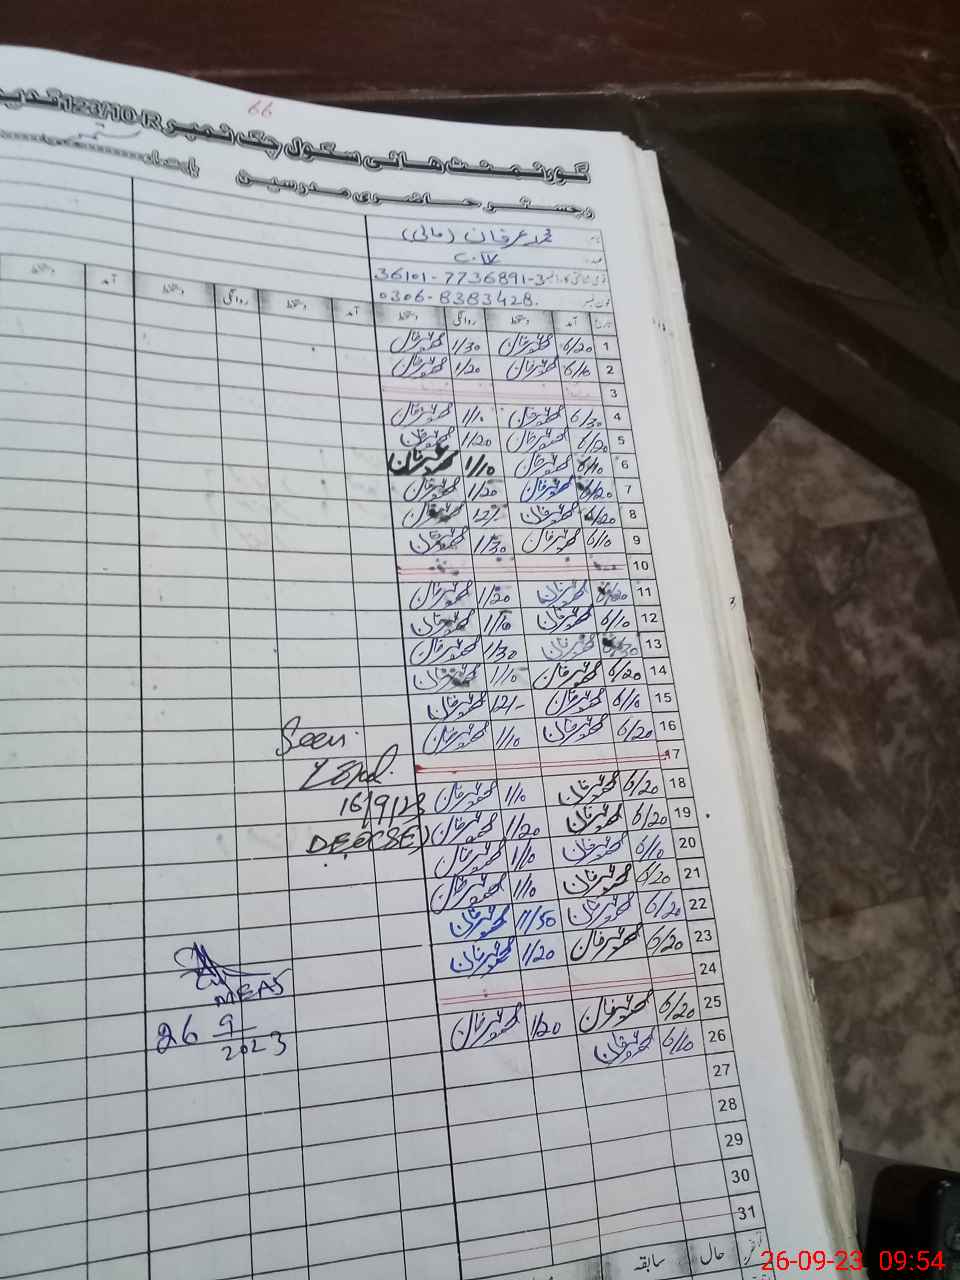 66
گورنمنٹ ہائی سکول چک نمبر 123/10-R قدیم
رجسٹر حاضری مدرسین بابت ماہ ستمبر
نام محمد عرفان (مالی)
عہدہ C.IV
قومی شناختی کارڈ نمبر 36101-7736891-3
فون نمبر 0306-8383428.
تاریخ آمد دستخط روانگی دستخط آمد دستخط روانگی دستخط آمد دستخط
1 6/20 محمد عرفان 1/30 محمد عرفان
2 6/10 محمد عرفان 1/20 محمد عرفان
3
4 6/30 محمد عرفان 1/10 محمد عرفان
5 6/20 محمد عرفان 1/20 محمد عرفان
6 6/10 محمد عرفان 1/10 محمد عرفان
7 6/20 محمد عرفان 1/20 محمد عرفان
8 6/20 محمد عرفان 12/- محمد عرفان
9 6/10 محمد عرفان 1/30 محمد عرفان
10
11 محمد عرفان 1/20 محمد عرفان
12 6/10 محمد عرفان 1/10 محمد عرفان
13 محمد عرفان 1/30 محمد عرفان
14 6/20 محمد عرفان 1/10 محمد عرفان
15 6/10 محمد عرفان 12/- محمد عرفان
16 6/20 محمد عرفان 1/10 محمد عرفان
Seen
17
18 6/20 محمد عرفان 1/10 محمد عرفان
16/9/23
19 6/20 محمد عرفان 1/20 محمد عرفان
DEO(SE)
20 6/10 محمد عرفان 1/10 محمد عرفان
21 6/20 محمد عرفان 1/10 محمد عرفان
22 6/20 محمد عرفان 11/30 محمد عرفان
23 6/20 محمد عرفان 1/20 محمد عرفان
24
MEAS
25 6/20 محمد عرفان 1/20 محمد عرفان
26 9/2023
26 6/10 محمد عرفان
27
28
29
30
31
حال سابقہ
26-09-23 09:54